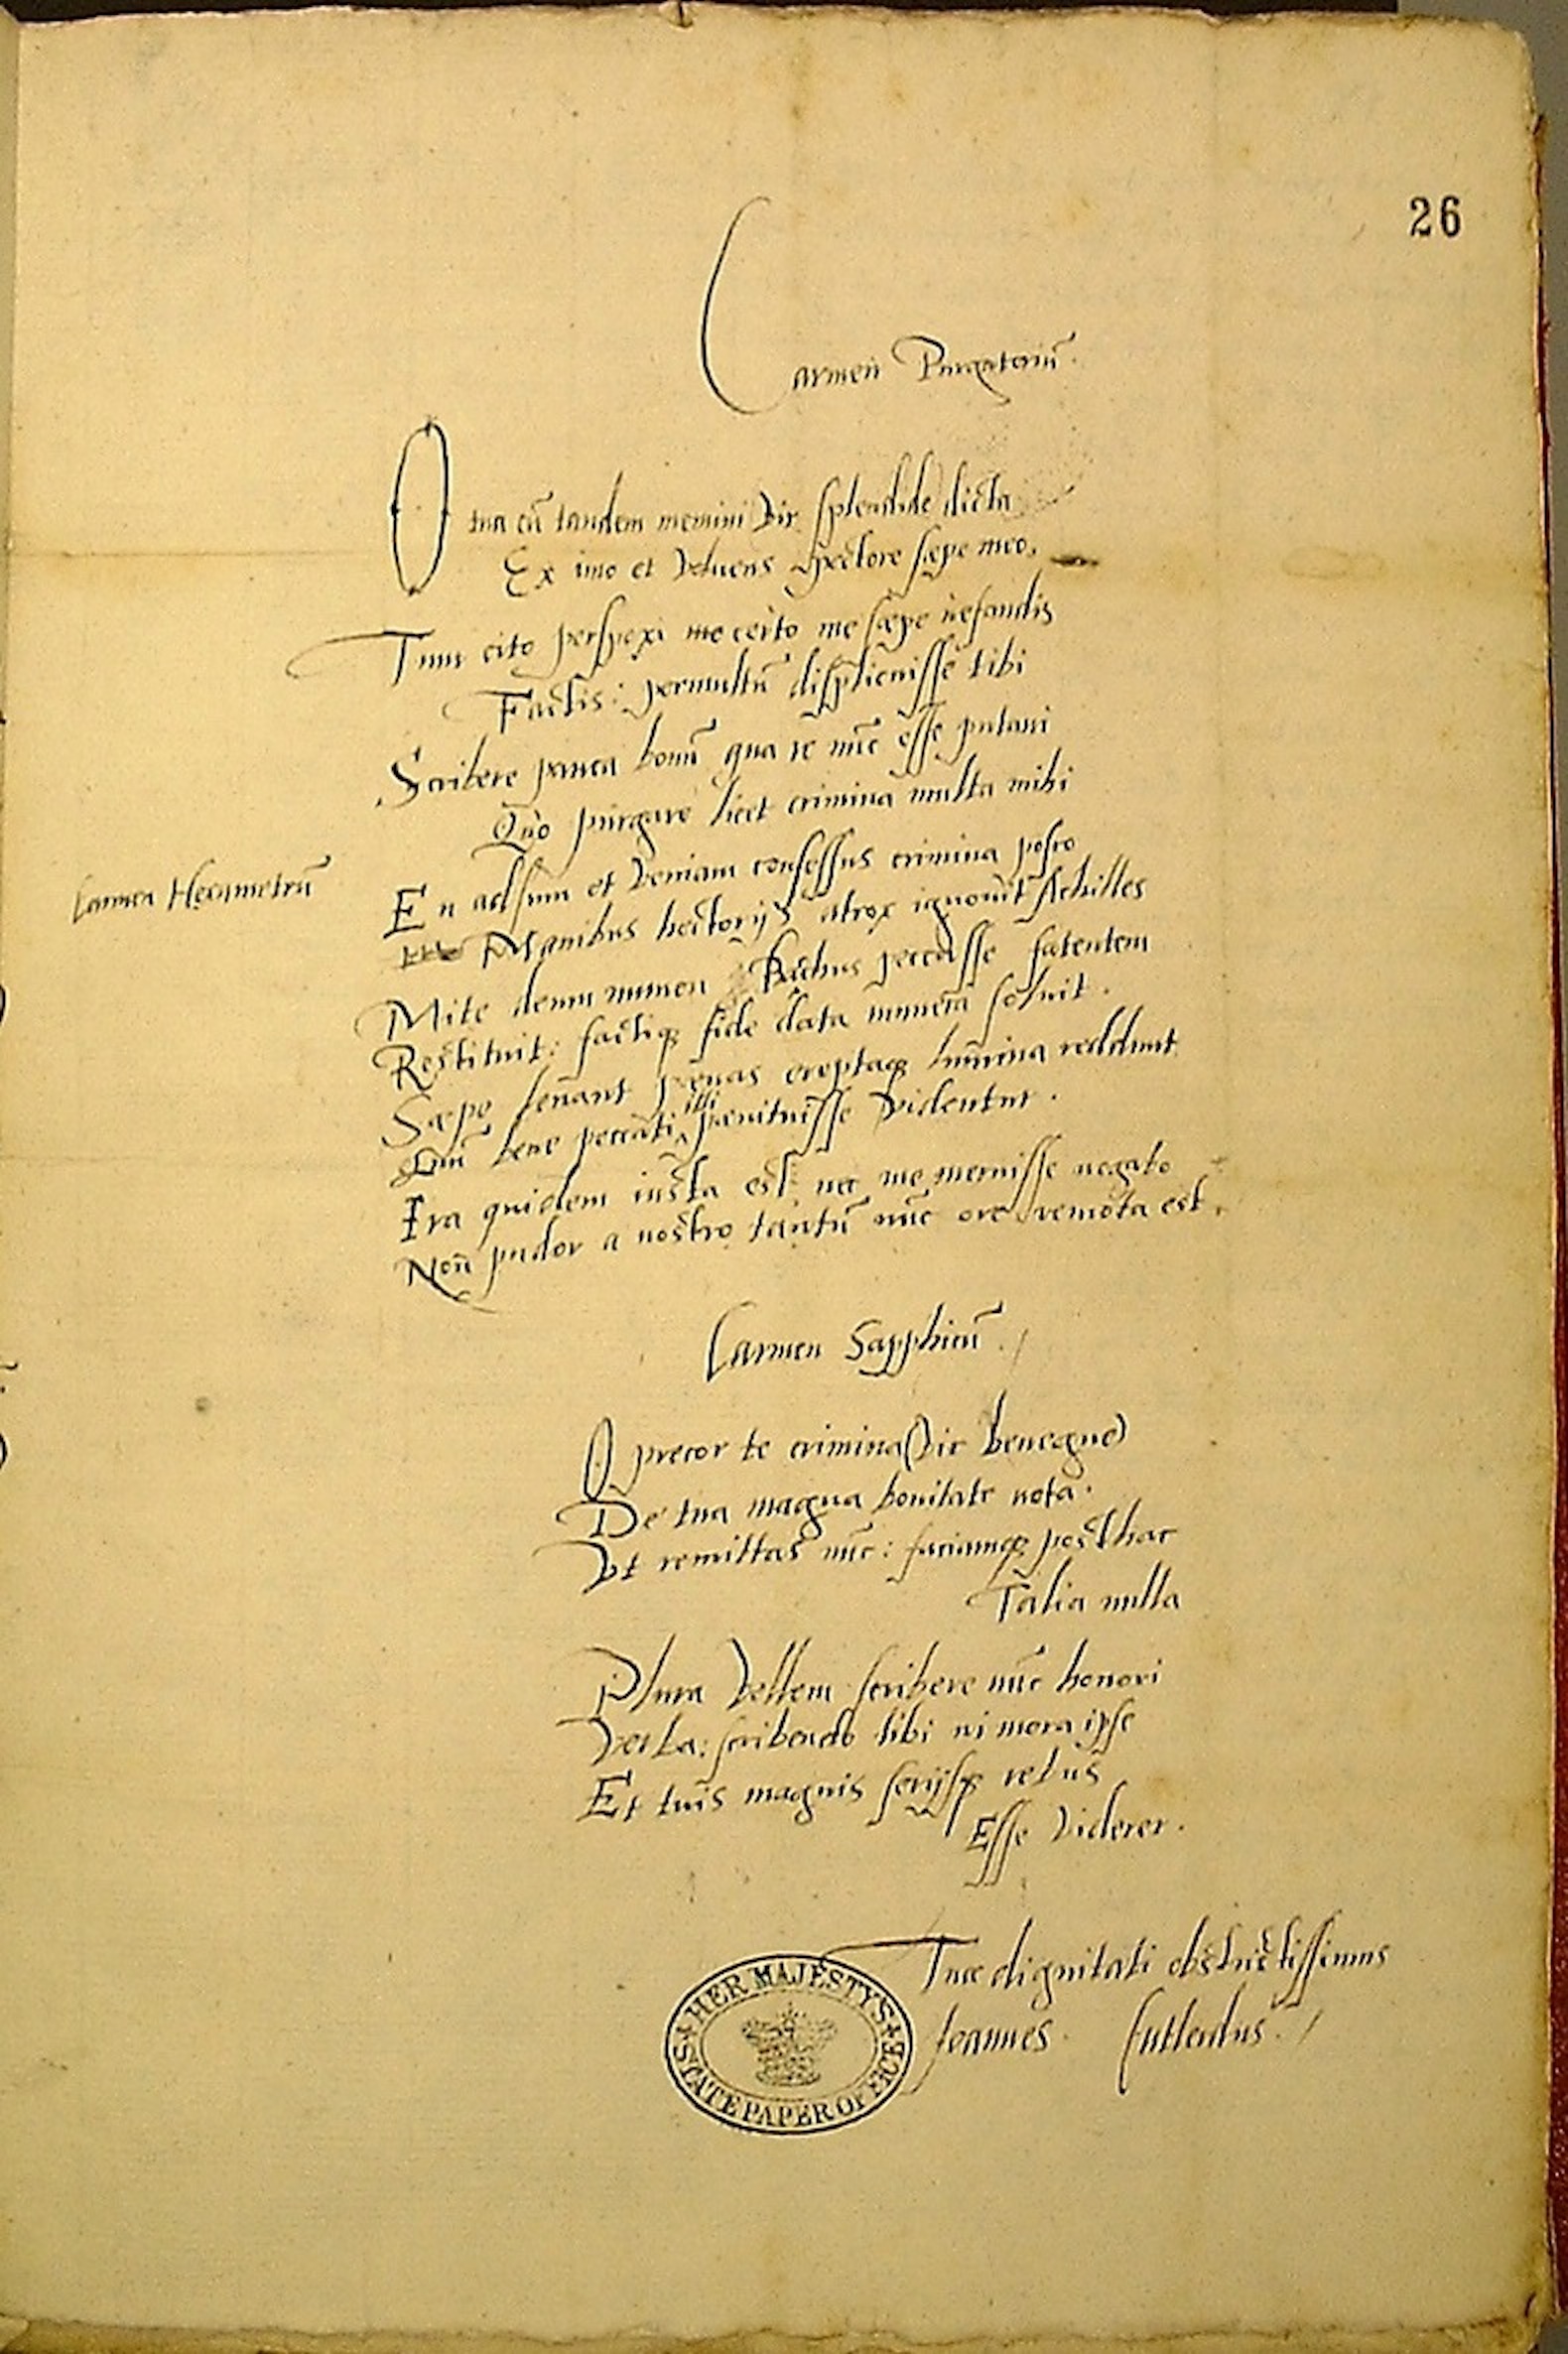 26
Carmen Purgatoriū.
O tua cū tandem memini vir splendide dicta
Ex imo et voluens pectore sæpe meo.
Tum cito perspexi me certo me sæpe nefandis
Factis: permultū displicuisse tibi
Scribere pauca bonū qua re nūc esse putaui
Quo purgare licet crimina multa mihi
Carmen Hexametrū
En adsum et veniam confessus crimina posco
Manibus hectorijs atrox ignouit Achilles
Mite deum numen Bacchus peccasse fatentem
Restituit: factiq; fide data munera soluit.
Sæpe leuant pœnas ereptaq; lumina reddunt
Quū bene peccati illi pœnituisse videntur.
Ira quidem iusta est: nec me meruisse negabo
Non pudor a nostro tantū nūc ore remota est.
Carmen Sapphicū.
O precor te crimina (vir benegne)
De tua magna bonitate nota.
Vt remittas nūc: faciamq; posthac
Talia nulla
Plura vellem scribere nūc honori
Verba: scribendo tibi ni mora ipse
Et tuis magnis serijsq; rebus
Esse viderer.
Tuæ dignitati obstrictissimus
Joannes
HER MAJESTY'S STATE PAPER OFFICE